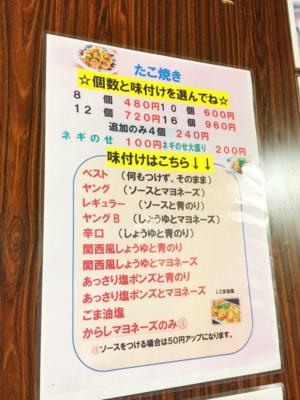 たこ焼き
☆個数と味付けを選んでね☆
8 個 480円 10 個 600円
12 個 720円 16 個 960円
追加のみ4個 240円
ネギのせ 100円 ネギのせ大盛り 200円
味付けはこちら↓↓
ベスト (何もつけず、そのまま)
ヤング (ソースとマヨネーズ)
レギュラー (ソースと青のり)
ヤングB (しょうゆとマヨネーズ)
辛口 (しょうゆと青のり)
関西風しょうゆと青のり
関西風しょうゆとマヨネーズ
あっさり塩ポンズと青のり
あっさり塩ポンズとマヨネーズ
ごま油塩
↓ごま油塩
からしマヨネーズのみ㊟
㊟ソースをつける場合は50円アップになります。